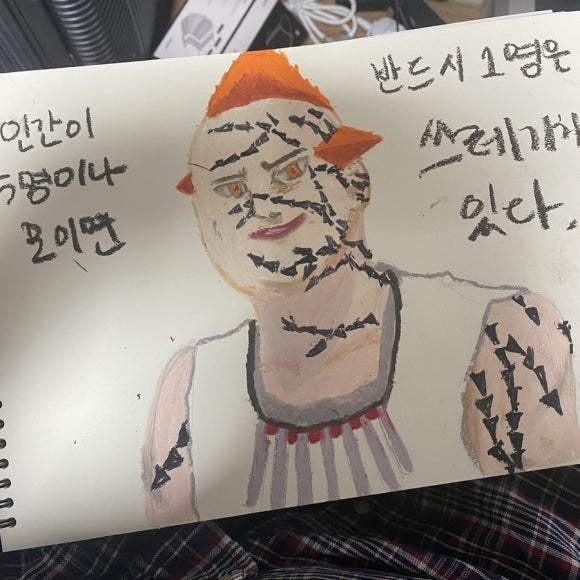 인간이
5명이나
모이면
반드시 1명은
쓰레기가
있다.